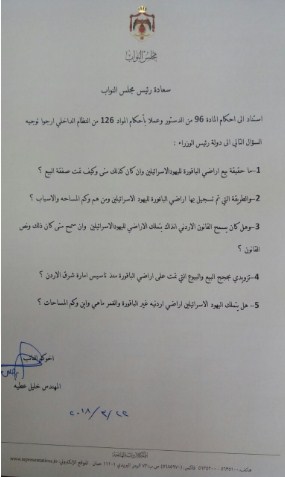 مجلس النواب
سعادة رئيس مجلس النواب
استناد الى احكام المادة 96 من الدستور وعملا بأحكام المواد 126 من النظام الداخلي ارجوا توجيه
السؤال التالي الى دولة رئيس الوزراء :
1-ما حقيقة بيع اراضي الباقورة لليهود الاسرائيلين وان كان كذلك متى وكيف تمت صفقة البيع ؟
2-والطريقة التي تم تسجيل بها اراضي الباقورة لليهود الاسرائيلين ومن هم وكم المساحه والاسباب ؟
3-وهل كان يسمح القانون الاردني انذاك بتملك الاراضي لليهود الاسرائيلين وان سمح متى كان ذلك ونص
القانون ؟
4-تزويدي بحجج البيع والبيوع التي تمت على اراضي الباقورة منذ تاسيس امارة شرق الاردن ؟
5- هل يتملك اليهود الاسرائيلين اراضي اردنيه غير الباقورة والغمر ماهي واين وكم المساحات ؟
اخوكم النائب
المهندس خليل عطيه
٢٠١٨/٣/٢٢